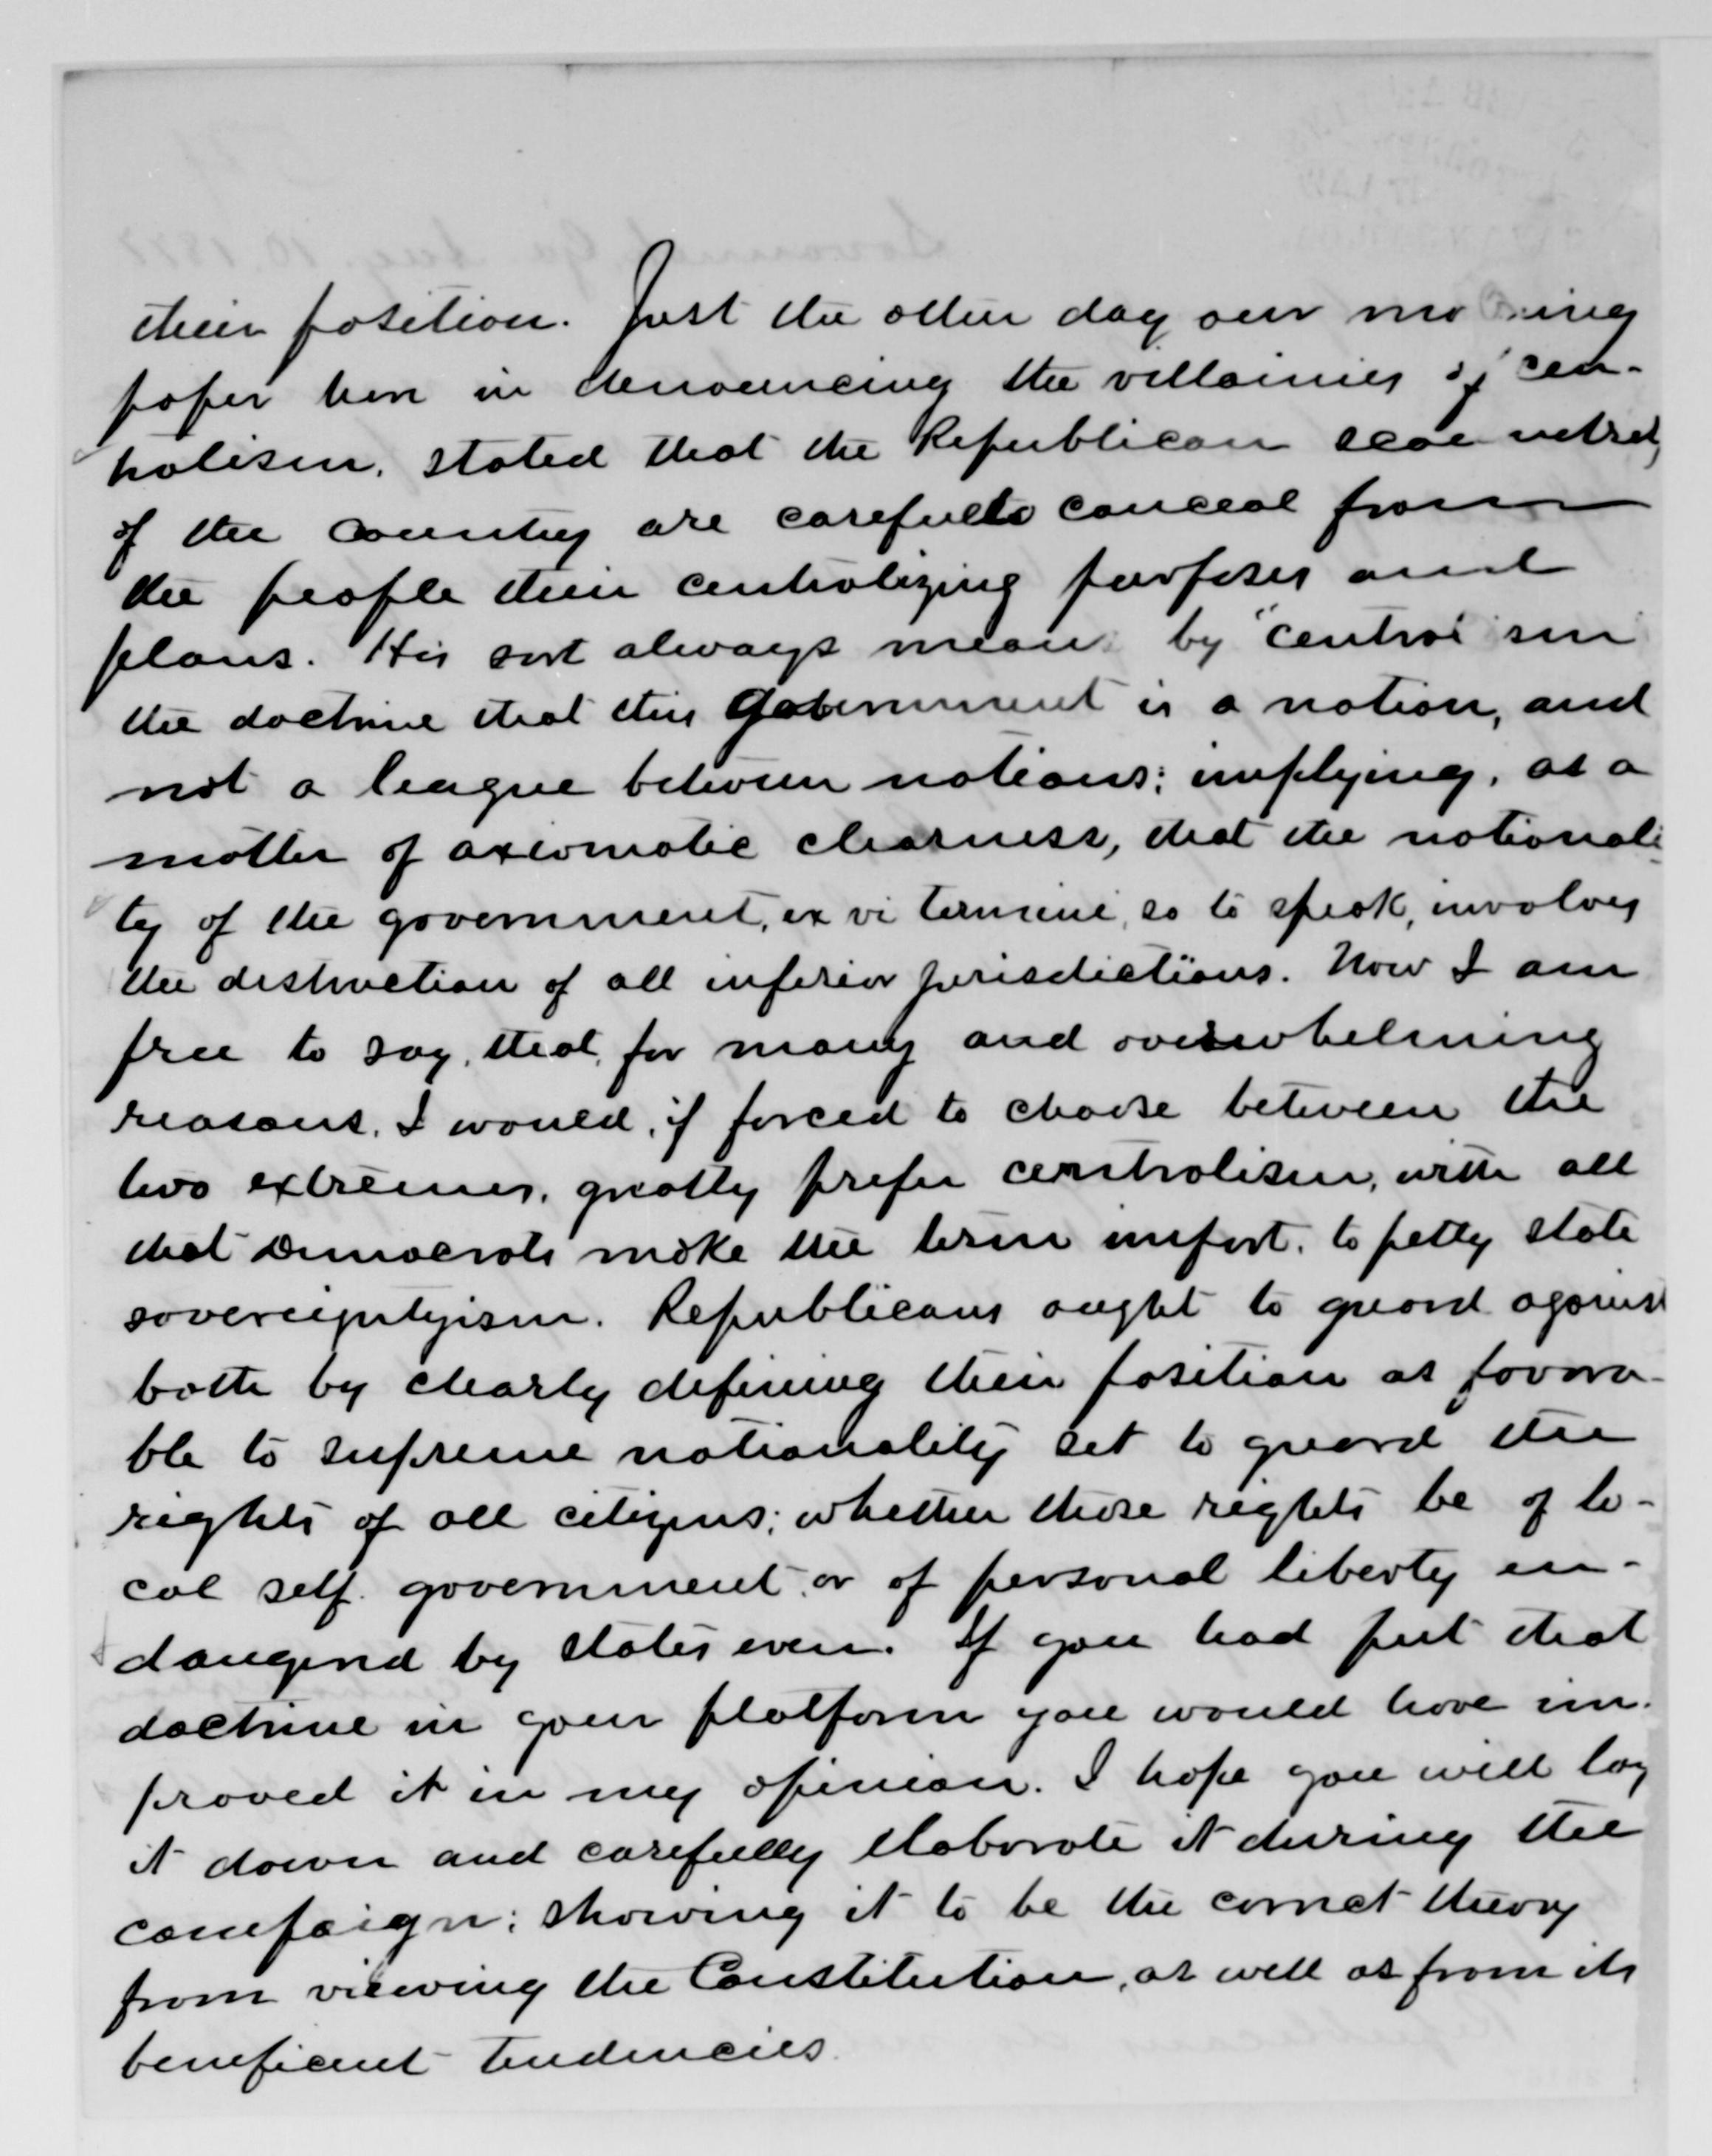 their position. Just the other day our morning
paper here in denouncing the villainies of cen-
tralism, stated that the Republican scoundrels
of the country are careful to conceal from
the people their centralizing purposes and
plans. His sort always means by "centralism"
the doctrine that this Government is a nation, and
not a league between nations; implying, as a
matter of axiomatic clearness, that the nationali-
ty of the government, ex vi termini, so to speak, involves
the destruction of all inferior jurisdictions. Now I am
free to say, that, for many and overwhelming
reasons, I would, if forced to choose between the
two extremes, greatly prefer centralism, with all
that Democrats make the term import, to petty state
sovereigntyism. Republicans ought to guard against
both by clearly defining their position as favora-
ble to supreme nationality set to guard the
rights of all citizens; whether those rights be of lo-
cal self. government, or of personal liberty en-
dangered by states even. If you had put that
doctrine in your platform you would have im-
proved it in my opinion. I hope you will lay
it down and carefully elaborate it during the
campaign; showing it to be the correct theory
from viewing the Constitution, as well as from its
beneficent tendencies.